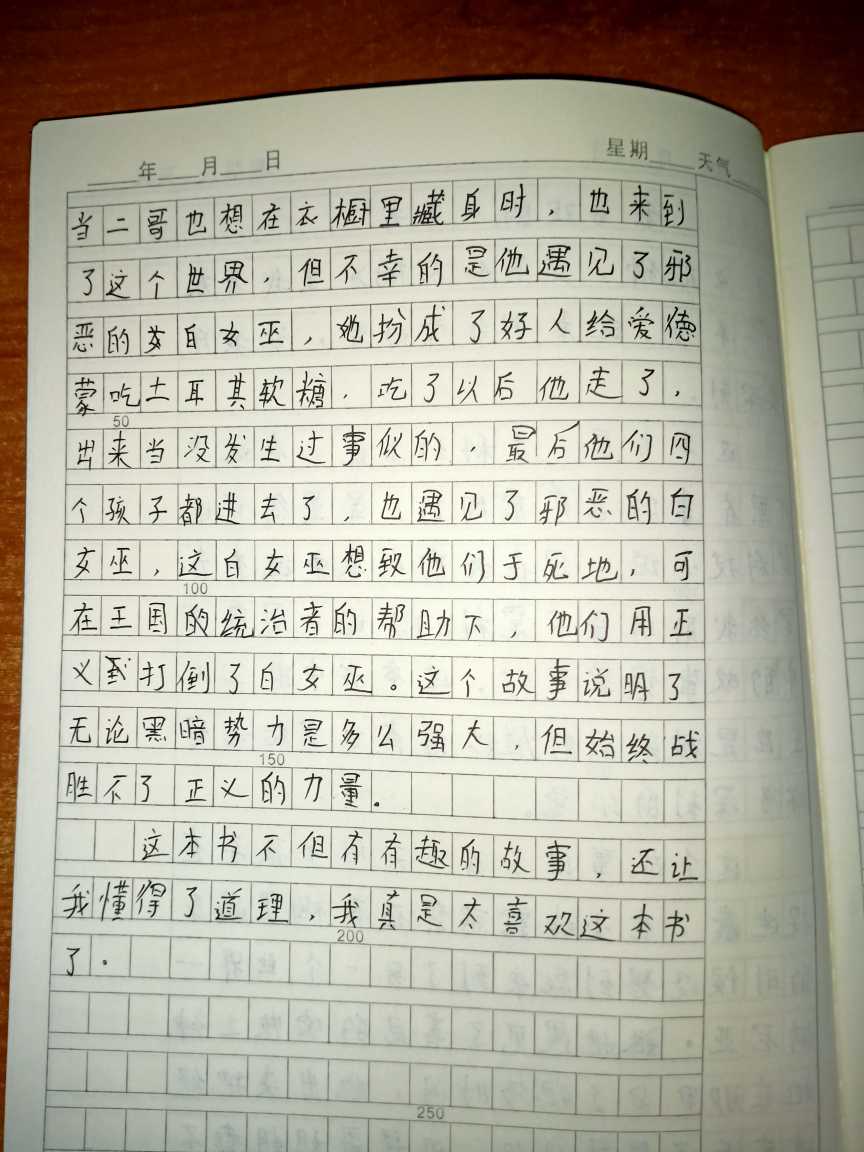 年 月 日 星期 天气
当二哥也想在衣橱里藏身时，也来到
了这个世界，但不幸的是他遇见了邪
恶的女白女巫，她扮成了好人给爱德
蒙吃土耳其软糖．吃了以后他走了，
50
出来当没发生过事似的，最后他们四
个孩子都进去了，也遇见了邪恶的白
女巫，这白女巫想致他们于死地，可
100
在王国的统治者的帮助下，他们用正
义打倒了白女巫。这个故事说明了
无论黑暗势力是多么强大，但始终战
150
胜不了正义的力量．
这本书不但有有趣的故事，还让
我懂得了道理，我真是太喜欢这本书
200
了．
250